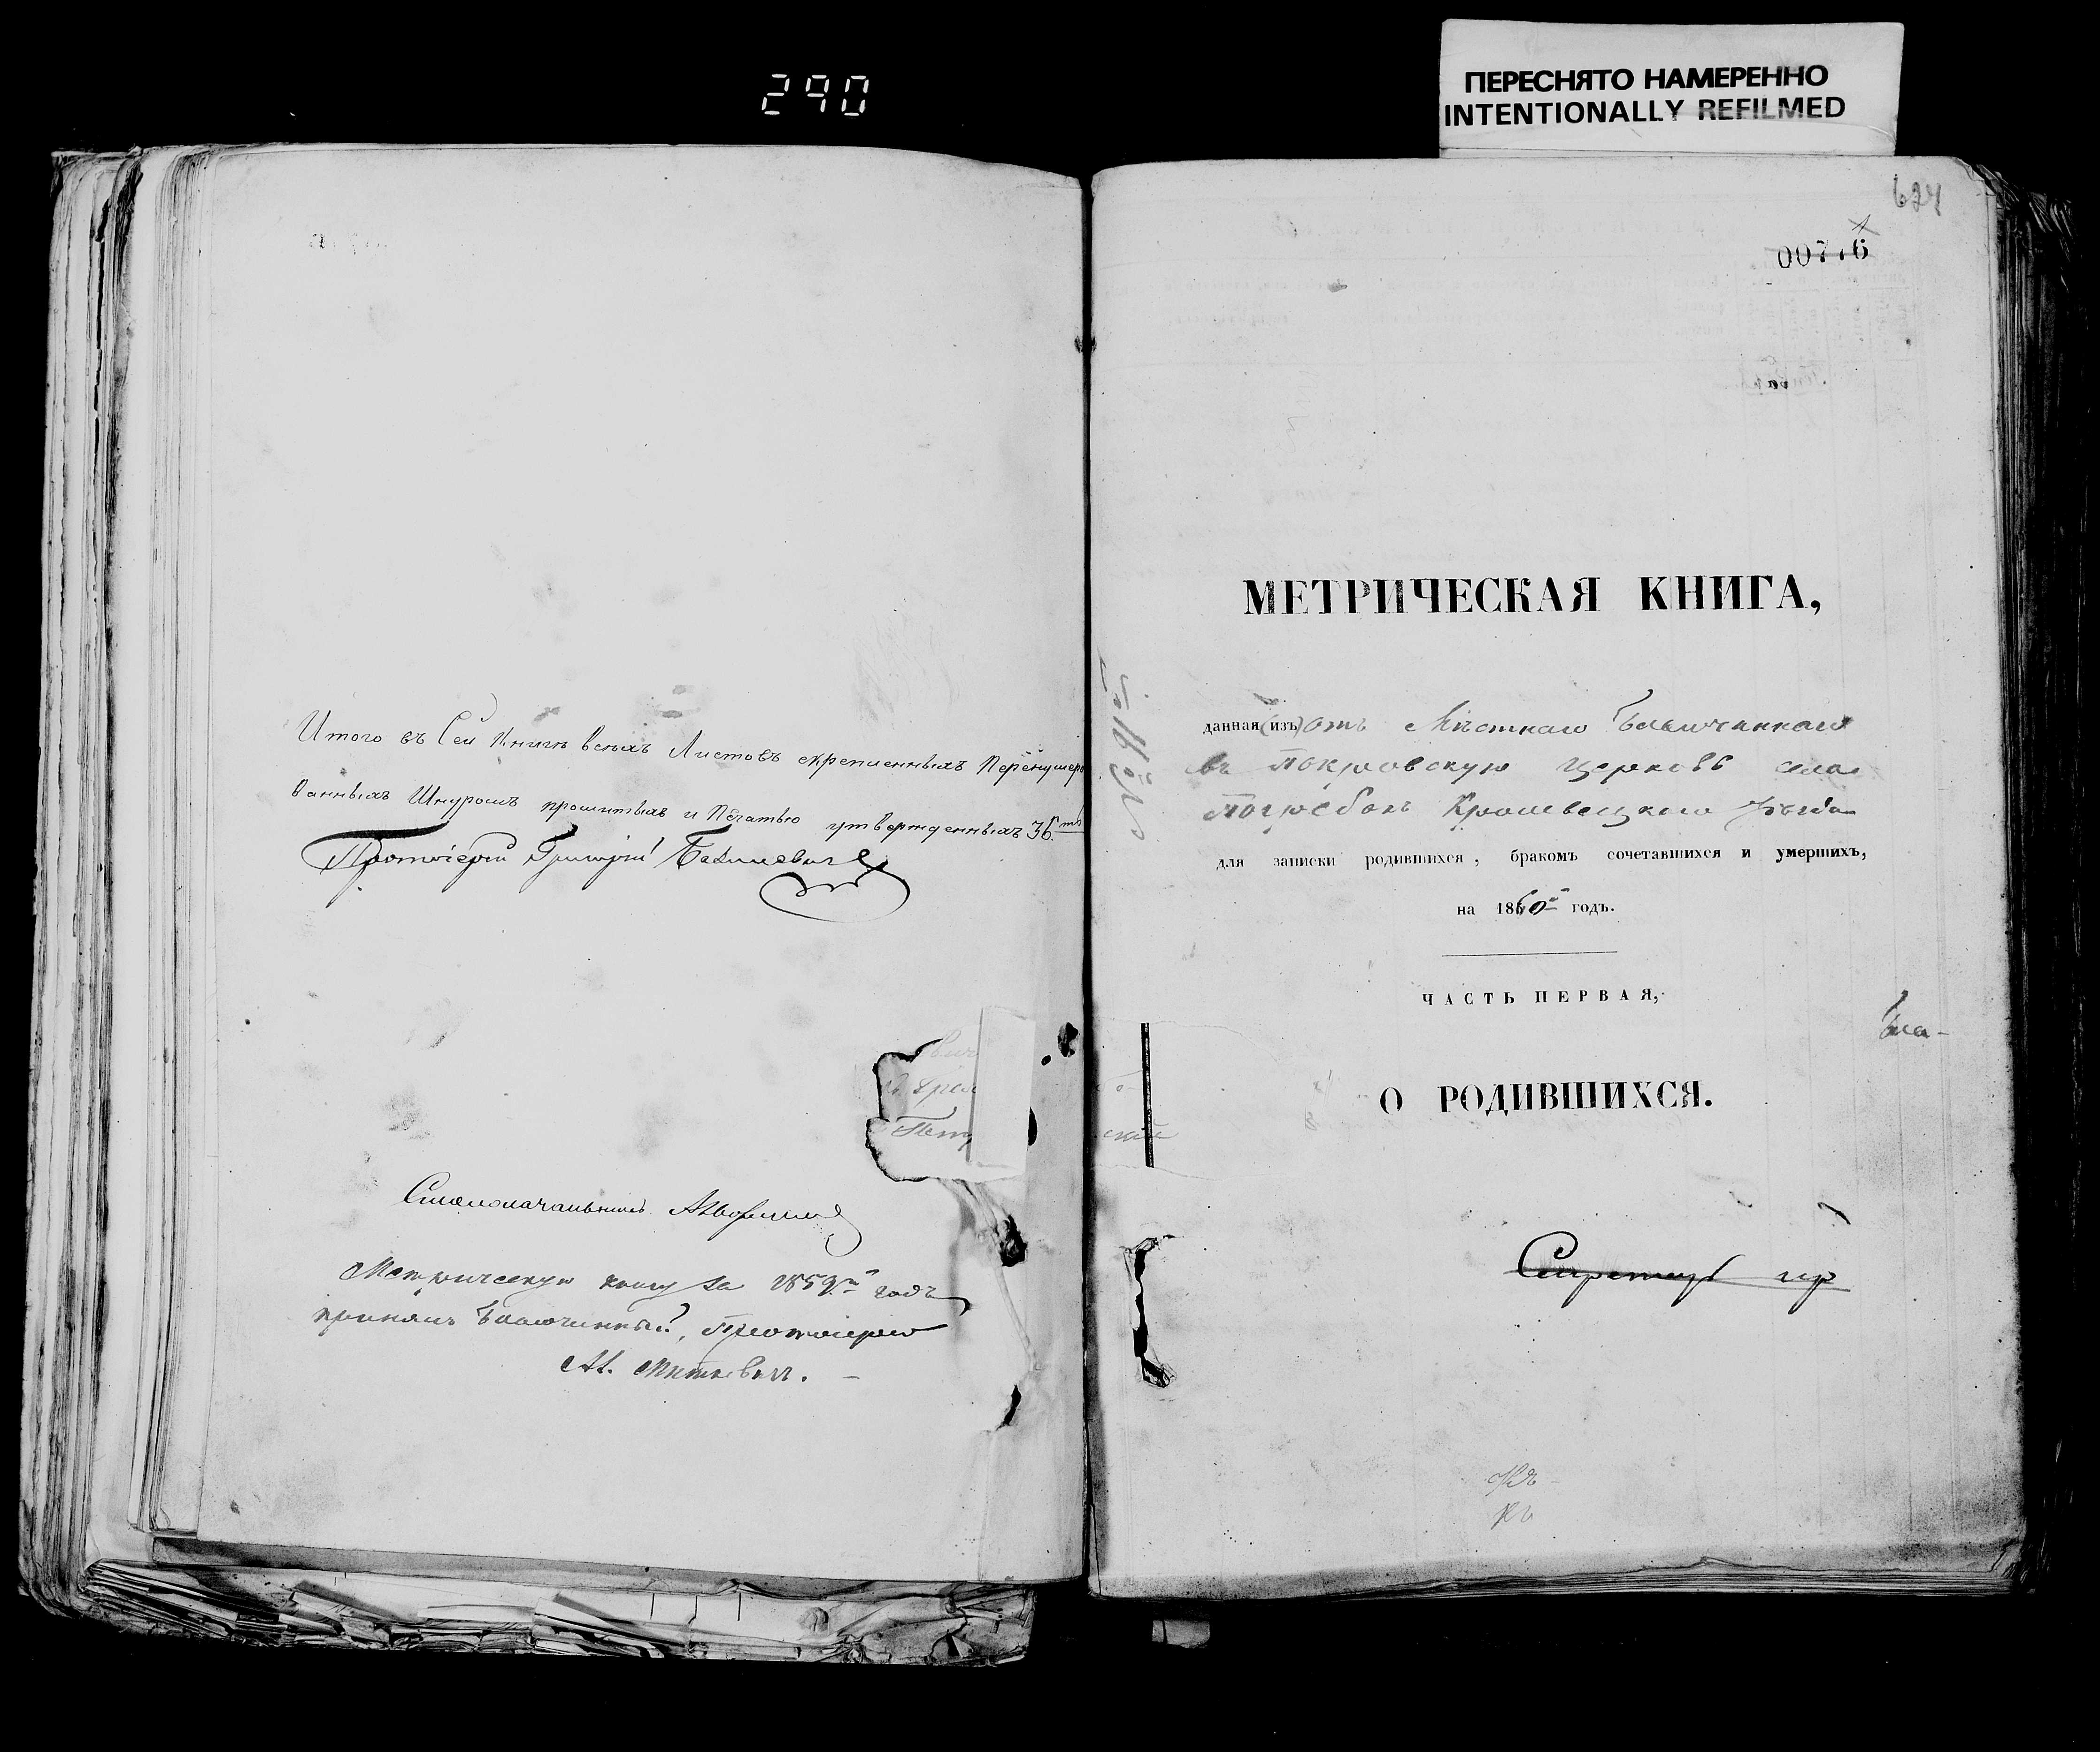 290
ПЕРЕСНЯТО НАМЕРЕННО
INTENTIONALLY REFILMED
Итого въ Сей Книгѣ всѣхъ Листовъ скрепленныхъ Перенумеро
ванныхъ Шнуромъ прошитыхъ и Печатью утвержденныхъ 36.ть
Протоіерей Григорій
Столоначальникъ
Метрическую книгу за 1859й годъ
принялъ Благочинный, Протоіерей
624
00776
МЕТРИЧЕСКАЯ КНИГА,
данная (изъ) отъ Мѣстнаго Благочиннаго
въ Покровскую церковь села
Погребокъ Кролевецкаго уѣзда
для записки родившихся, бракомъ сочетавшихся и умершихъ,
на 1860й годъ.
ЧАСТЬ ПЕРВАЯ,
Бла-
О РОДИВШИХСЯ.
Секретарь